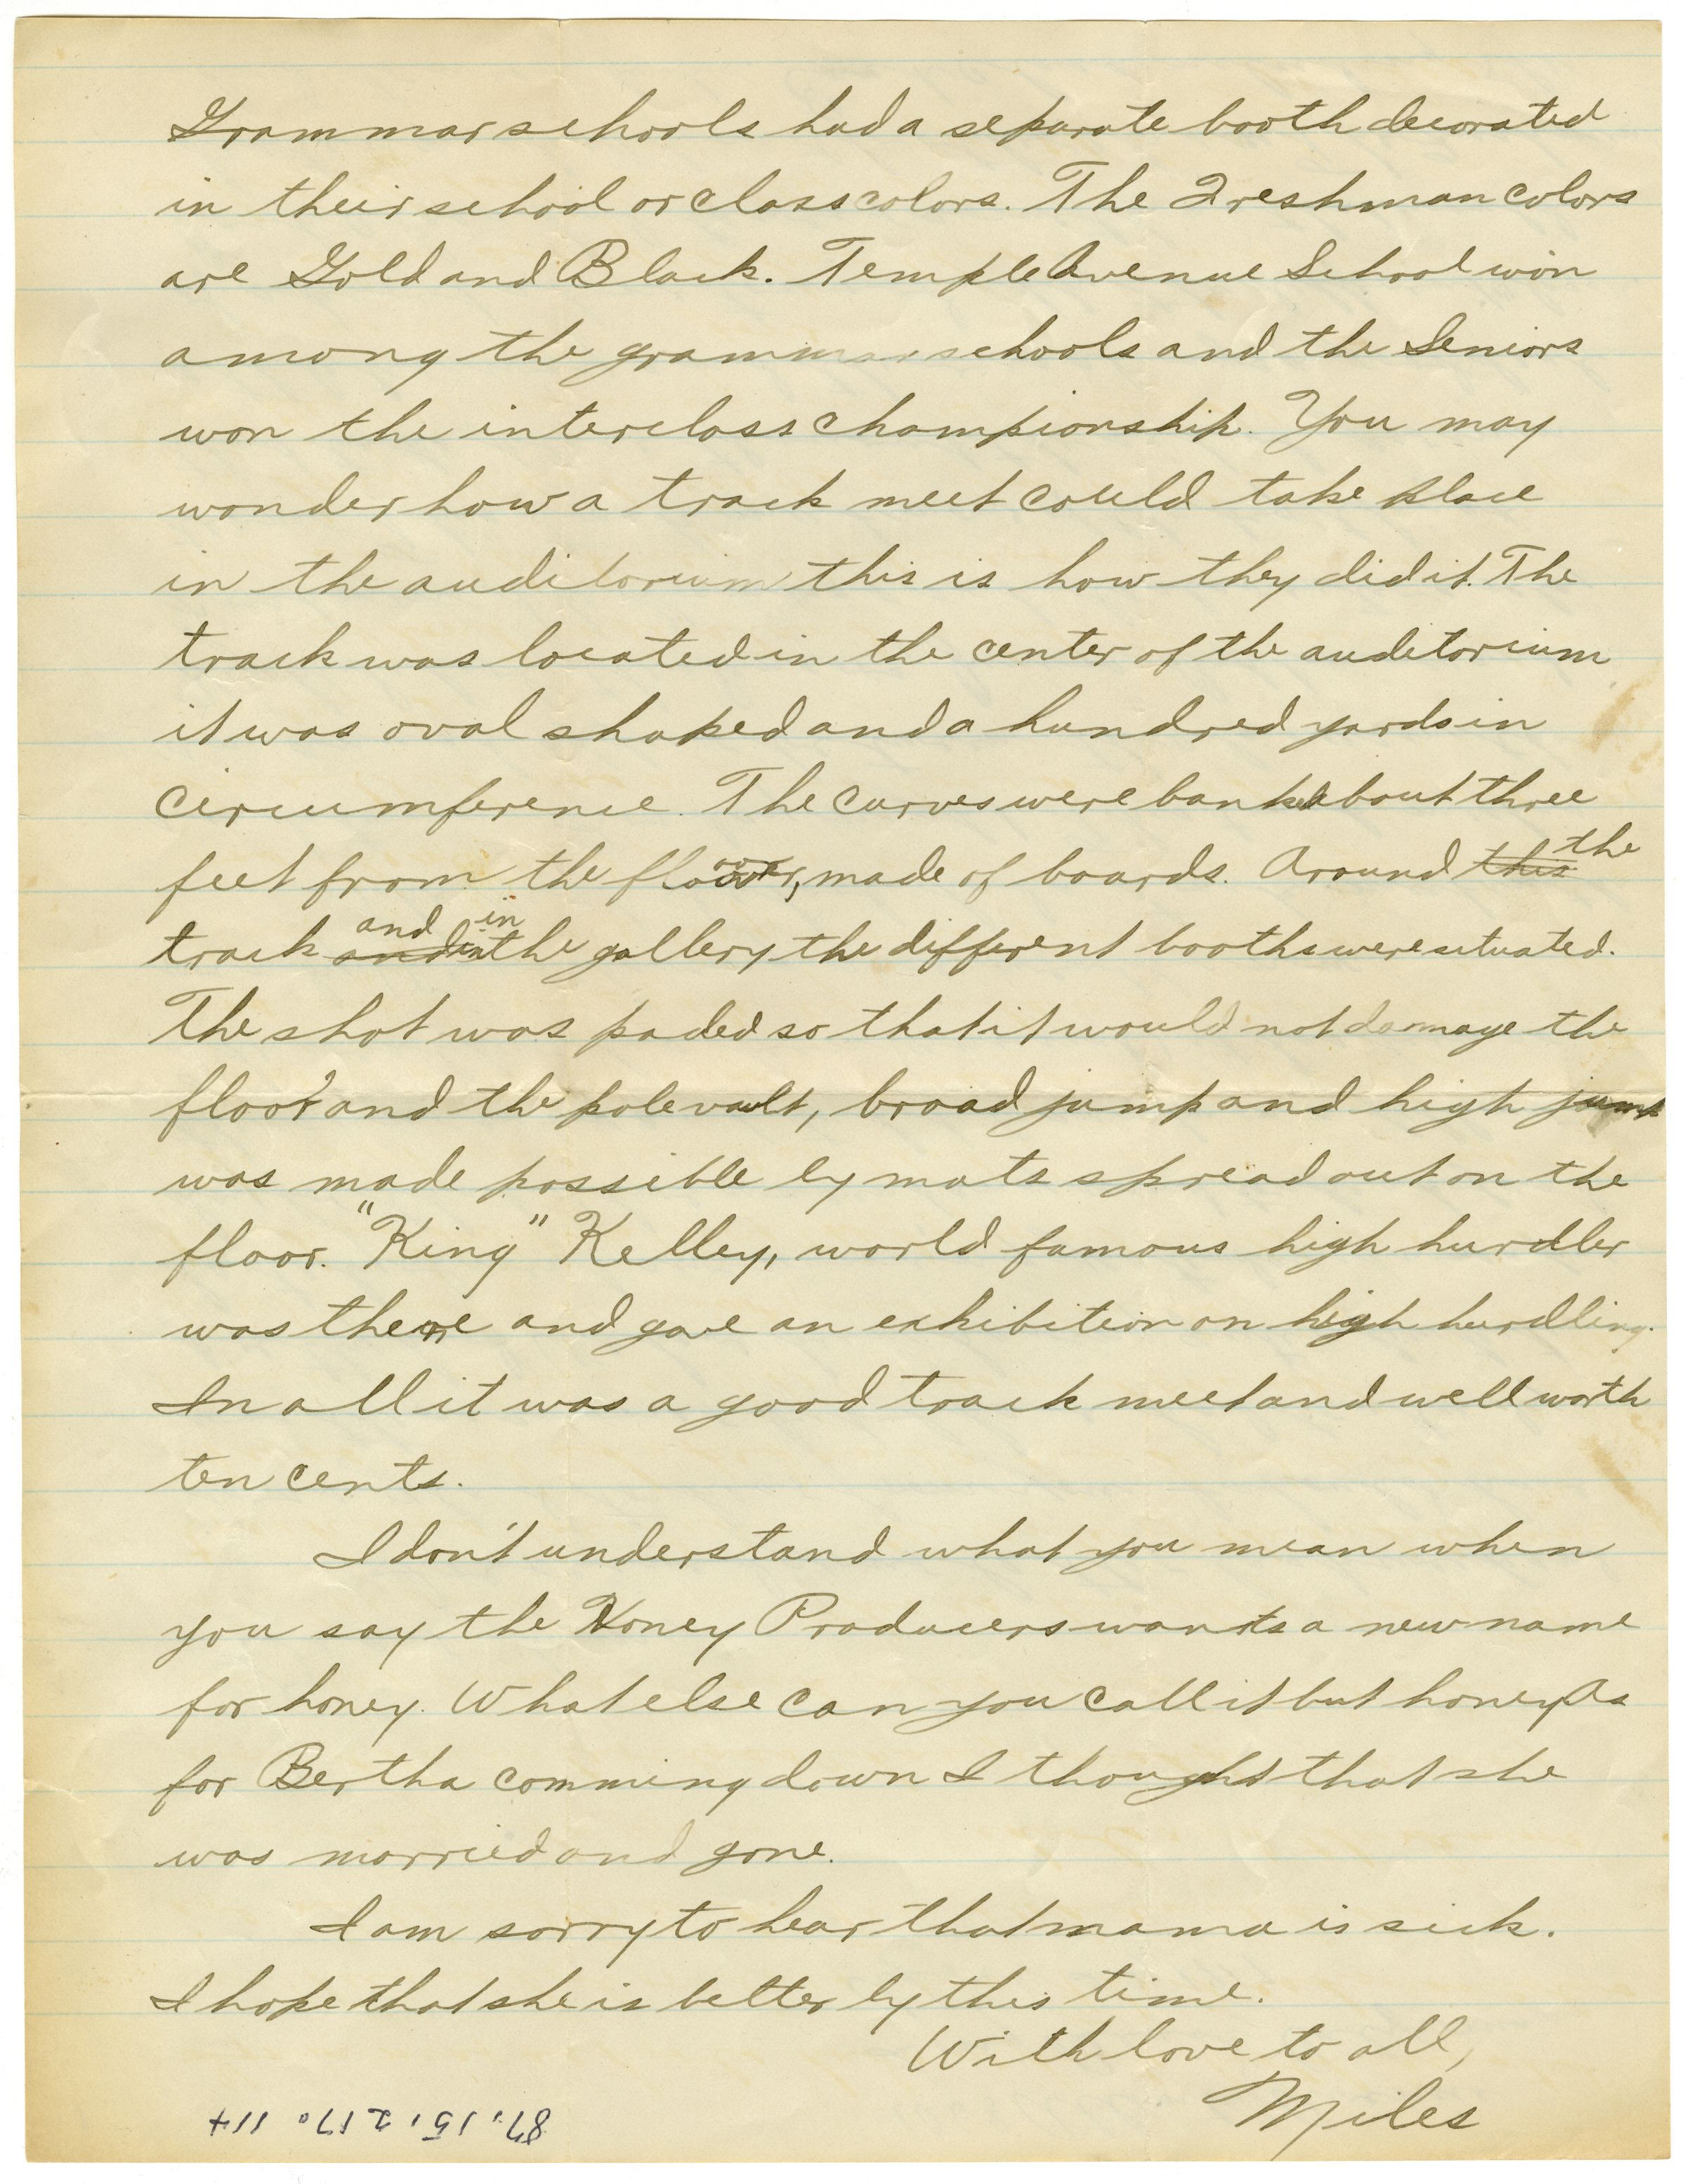 Grammar schools had a separate booth decorated
in their school or class colors. The Freshman colors
are Gold and Black. Temple Avenue School won
among the grammar schools and the Seniors
won the interclass championship. You may
wonder how a track meet could take place
in the auditorium this is how they did it. The
track was located in the center of the auditorium
it was oval shaped and a hundred yards in
circumference. The curves were banked about three
feet from the floor, made of boards. Around this the
track and in and in the gallery the different booths were situated.
The shot was paded so that it would not dammage the
floor and the pole vault, broad jump and high jump
was made possible by mats spread out on the
floor. "King" Kelley, world famous high hurdler
was there and gave an exhibition on high hurdling.
In all it was a good track meet and well worth
ten cents.
I don't understand what you mean when
you say the Honey Producers wants a new name
for honey. What else can you call it but honey As
for Bertha comming down I thought that she
was married and gone.
I am sorry to hear that mama is sick.
I hope that she is better by this time.
With love to all,
Miles
87.15.217o 114